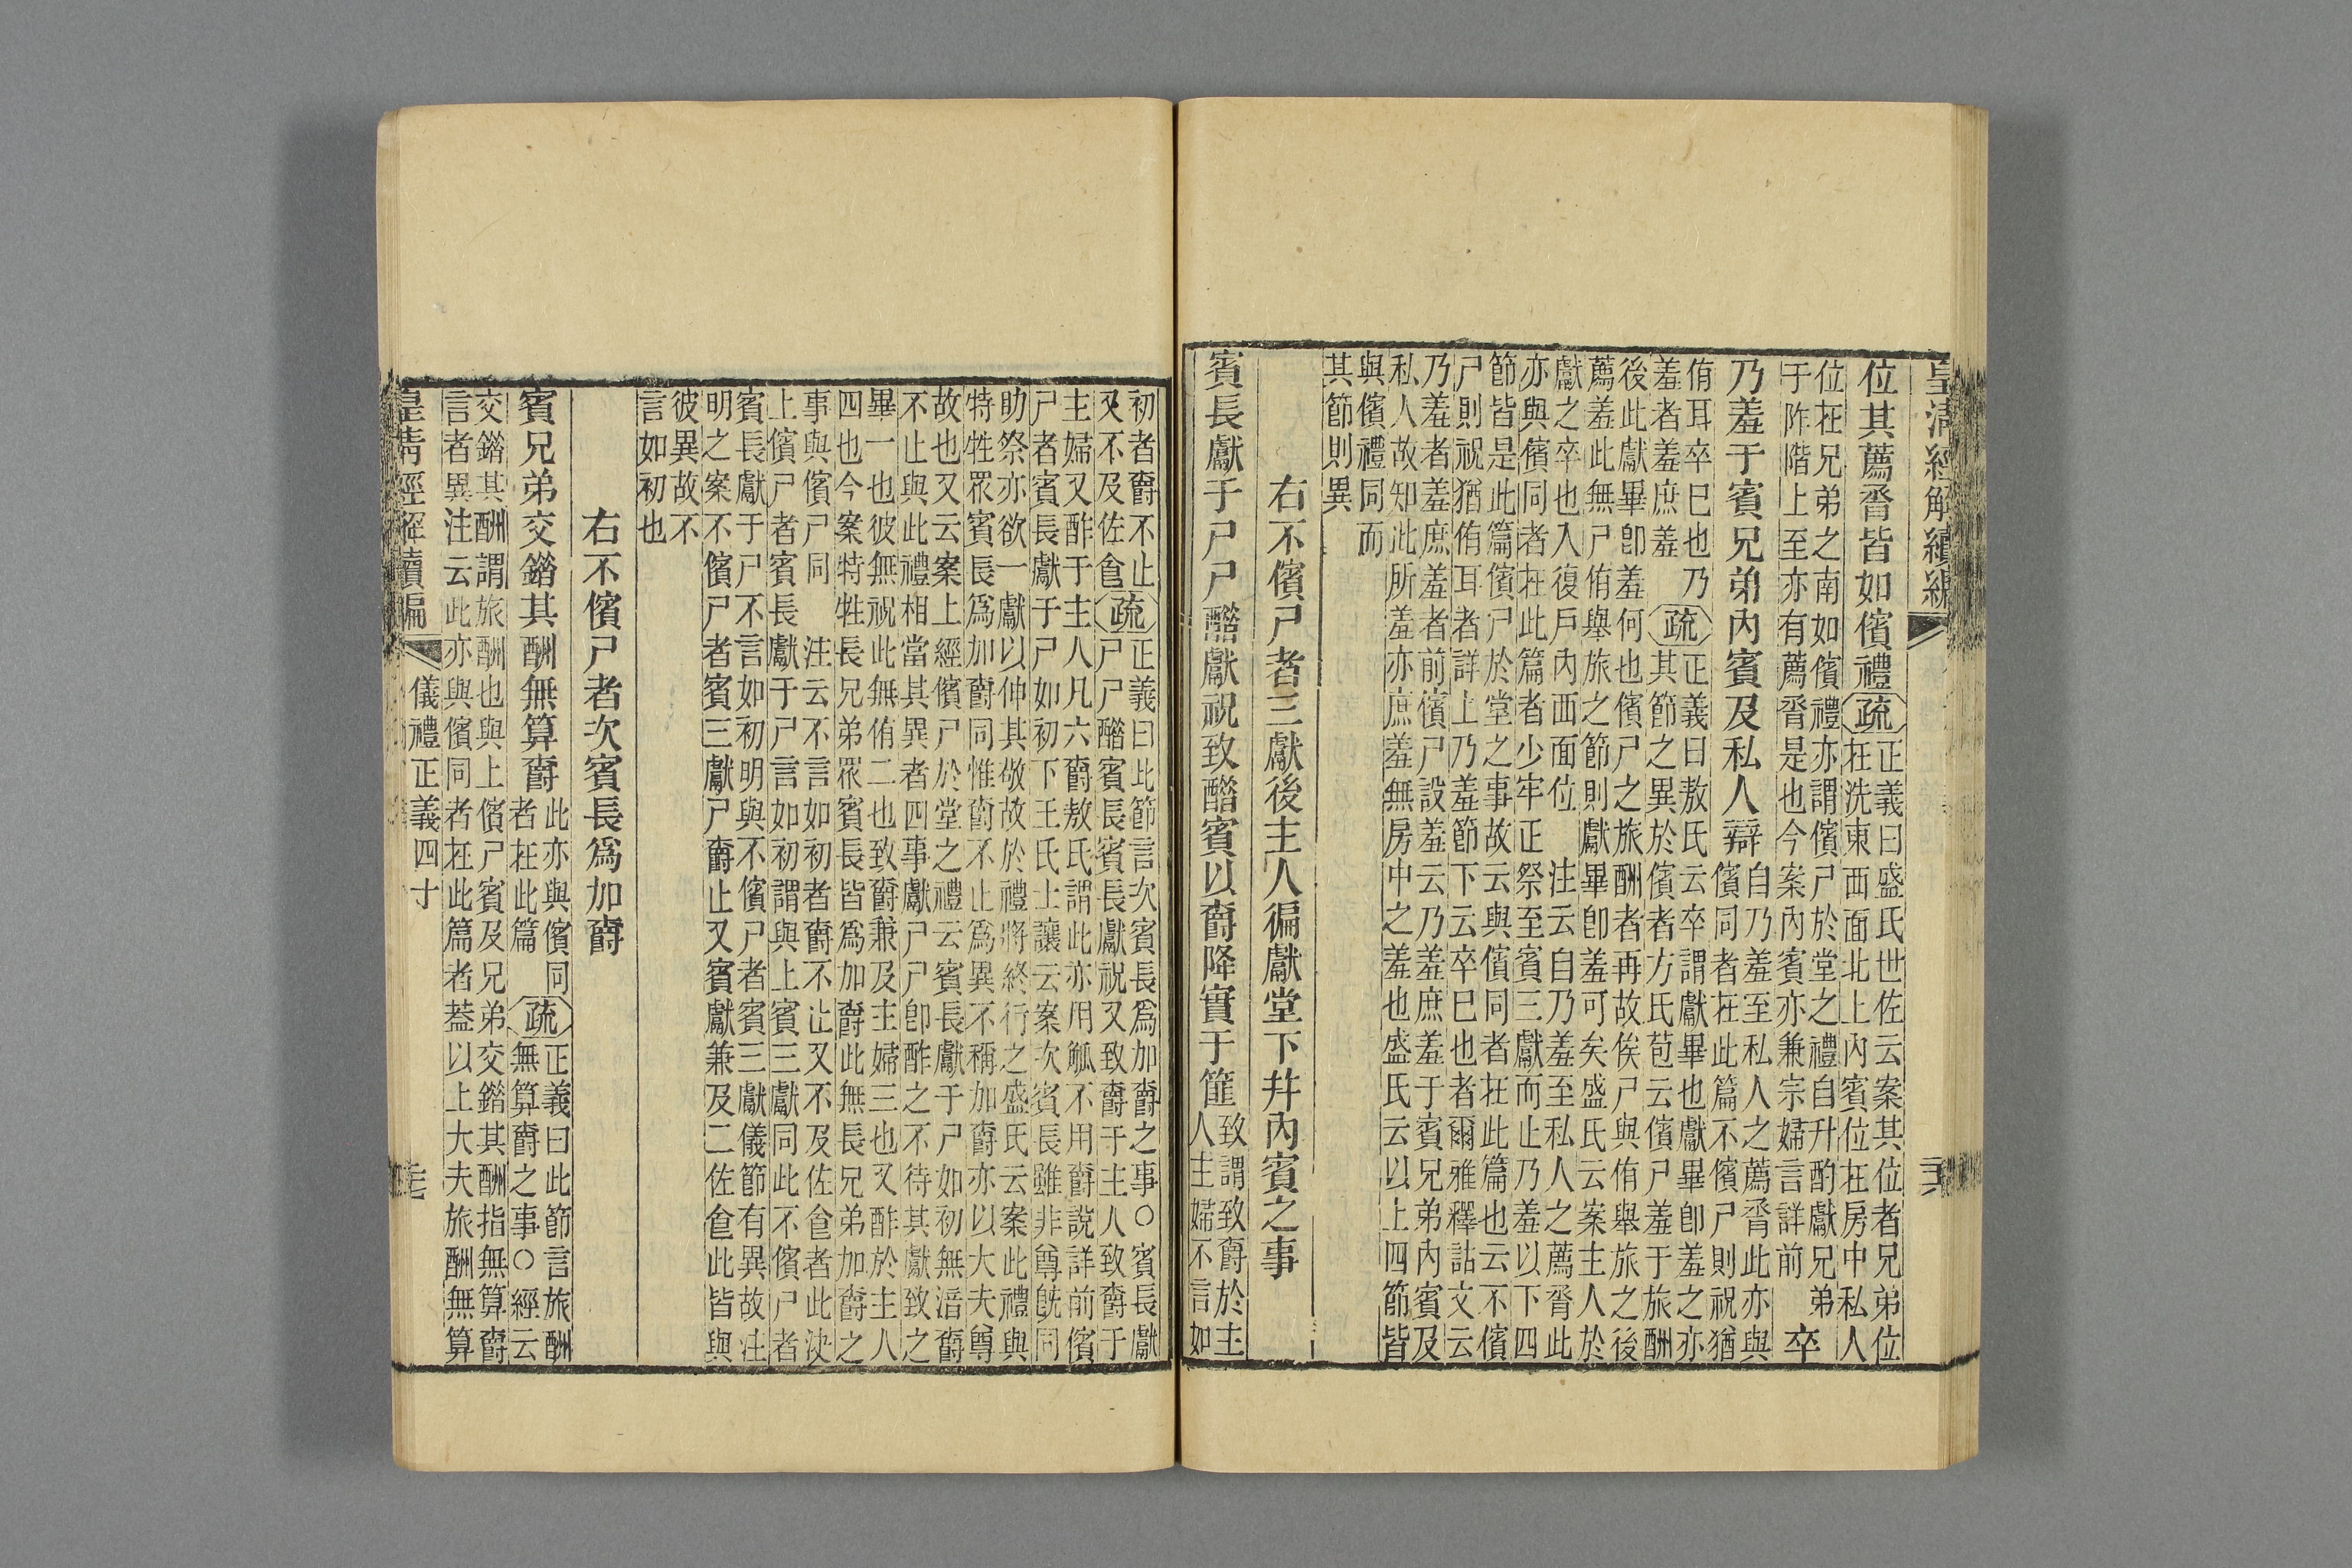 皇清經解續編
位其薦脀皆如儐禮疏正義曰盛氏世佐云案其位者兄弟位
在洗東西面北上內賓位在房中私人
位在兄弟之南如儐禮亦謂儐尸於堂之禮自升酌獻兄弟
于阼階上至亦有薦脀是也今案內賓亦兼宗婦言詳前
卒
乃羞于賓兄弟內賓及私人辯自乃羞至私人之薦脀此亦與
儐同者在此篇不儐尸則祝猶
侑耳卒巳也乃
羞者羞庶羞
疏正義曰敖氏云卒謂獻畢也獻畢卽羞之亦
其節之異於儐者方氏苞云儐尸羞于旅酬
後此獻畢卽羞何也儐尸之旅酬者再故俟尸與侑舉旅之後
薦羞此無尸侑舉旅之節則獻畢卽羞可矣盛氏云案主人於
獻之卒也入復戶內西面位 注云自乃羞至私人之薦脀此
亦與儐同者在此篇者少牢正祭至賓三獻而止乃羞以下四
節皆是此篇儐尸於堂之事故云與儐同者在此篇也云不儐
尸則祝猶侑耳者詳上乃羞節下云卒巳也者爾雅釋詁文云
乃羞者羞庶羞者前儐尸設羞云乃羞庶羞于賓兄弟內賓及
私人故知此所羞亦庶羞無房中之羞也盛氏云以上四節皆
與儐禮同而
其節則異
右不儐尸者三獻後主人徧獻堂下幷內賓之事
賓長獻于尸尸醋獻祝致醋賓以爵降實于篚致謂致爵於主
人主婦不言如
初者爵不止
又不及佐食
疏正義曰此節言次賓長爲加爵之事○賓長獻
尸尸醋賓長賓長獻祝又致爵于主人致爵于
主婦又酢于主人凡六爵敖氏謂此亦用觚不用爵說詳前儐
尸者賓長獻于尸如初下王氏士讓云案次賓長雖非尊旣同
助祭亦欲一獻以伸其敬故於禮將終行之盛氏云案此禮與
特牲眾賓長爲加爵同惟爵不止爲異不稱加爵亦以大夫尊
故也又云案上經儐尸於堂之禮云賓長獻于尸如初無湇爵
不止與此禮相當其異者四事獻尸尸卽酢之不待其獻致之
畢一也彼無祝此無侑二也致爵兼及主婦三也又酢於主人
四也今案特牲長兄弟眾賓長皆爲加爵此無長兄弟加爵之
事與儐尸同 注云不言如初者爵不止又不及佐食者此決
上儐尸者賓長獻于尸言如初謂與上賓三獻同此不儐尸者
賓長獻于尸不言如初明與不儐尸者賓三獻儀節有異故注
明之案不儐尸者賓三獻尸爵止又賓獻兼及二佐食此皆與
彼異故不
言如初也
右不儐尸者次賓長爲加爵
賓兄弟交錯其酬無算爵此亦與儐同
者在此篇
疏正義曰此節言旅酬
無算爵之事○經云
交錯其酬謂旅酬也與上儐尸賓及兄弟交錯其酬指無算爵
言者異注云此亦與儐同者在此篇者葢以上大夫旅酬無算
皇清經解續編
儀禮正義四十